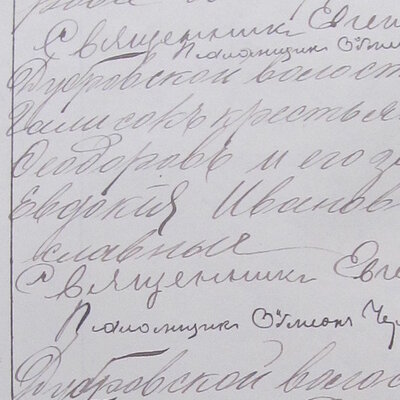 Священникъ Евген
Псаломщикъ
Дубровской волост
крестья
Ѳеодоровъ и его з
Евдокія Иванов
славные
Священникъ Евге
Псаломщикъ Че
Дубровской волос